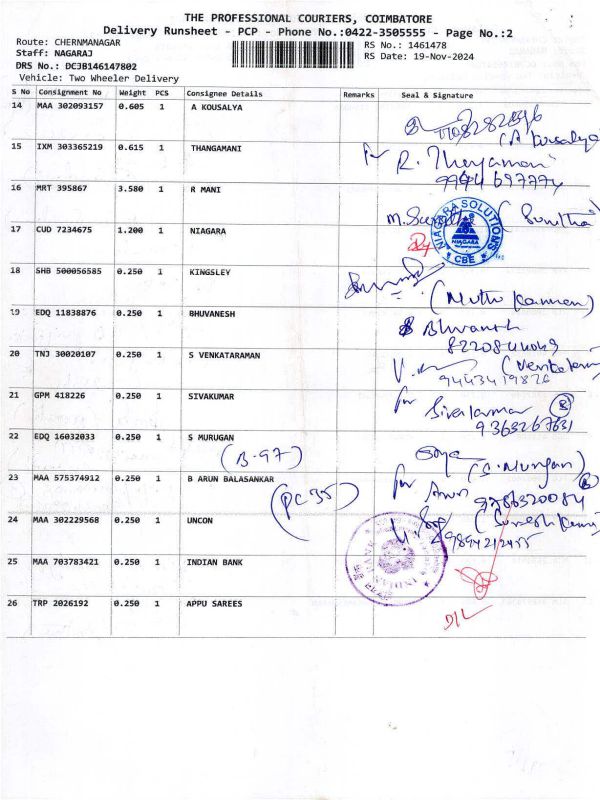 THE PROFESSIONAL COURIERS, COIMBATORE
Delivery Runsheet - PCP - Phone No.:0422-3505555 - Page No.:2
Route: CHERNMANAGAR
RS No.: 1461478
Staff: NAGARAJ
RS Date: 19-Nov-2024
DRS No.: DCJB146147802
Vehicle: Two Wheeler Delivery
S No Consignment No Weight PCS Consignee Details Remarks Seal & Signature
14 MAA 302093157 0.605 1 A KOUSALYA
15 IXM 303365219 0.615 1 THANGAMANI
R. Thangamani
16 MRT 395867 3.580 1 R MANI
(Sunitha)
NIAGARA SOLUTIONS
NIAGARA
CBE
17 CUD 7234675 1.200 1 NIAGARA
18 SHB 500056585 0.250 1 KINGSLEY
(Muthu Kannan)
19 EDQ 11838876 0.250 1 BHUVANESH
8220844049
20 TNJ 30020107 0.250 1 S VENKATARAMAN
9443419826
21 GPM 418226 0.250 1 SIVAKUMAR
for Sivakumar
9363267631
22 EDQ 16032033 0.250 1 S MURUGAN
(B-97)
(S. Murugan)
23 MAA 575374912 0.250 1 B ARUN BALASANKAR
for Arun 9786320084
(PC 35)
24 MAA 302229568 0.250 1 UNCON
9894212455
25 MAA 703783421 0.250 1 INDIAN BANK
26 TRP 2026192 0.250 1 APPU SAREES
D/L